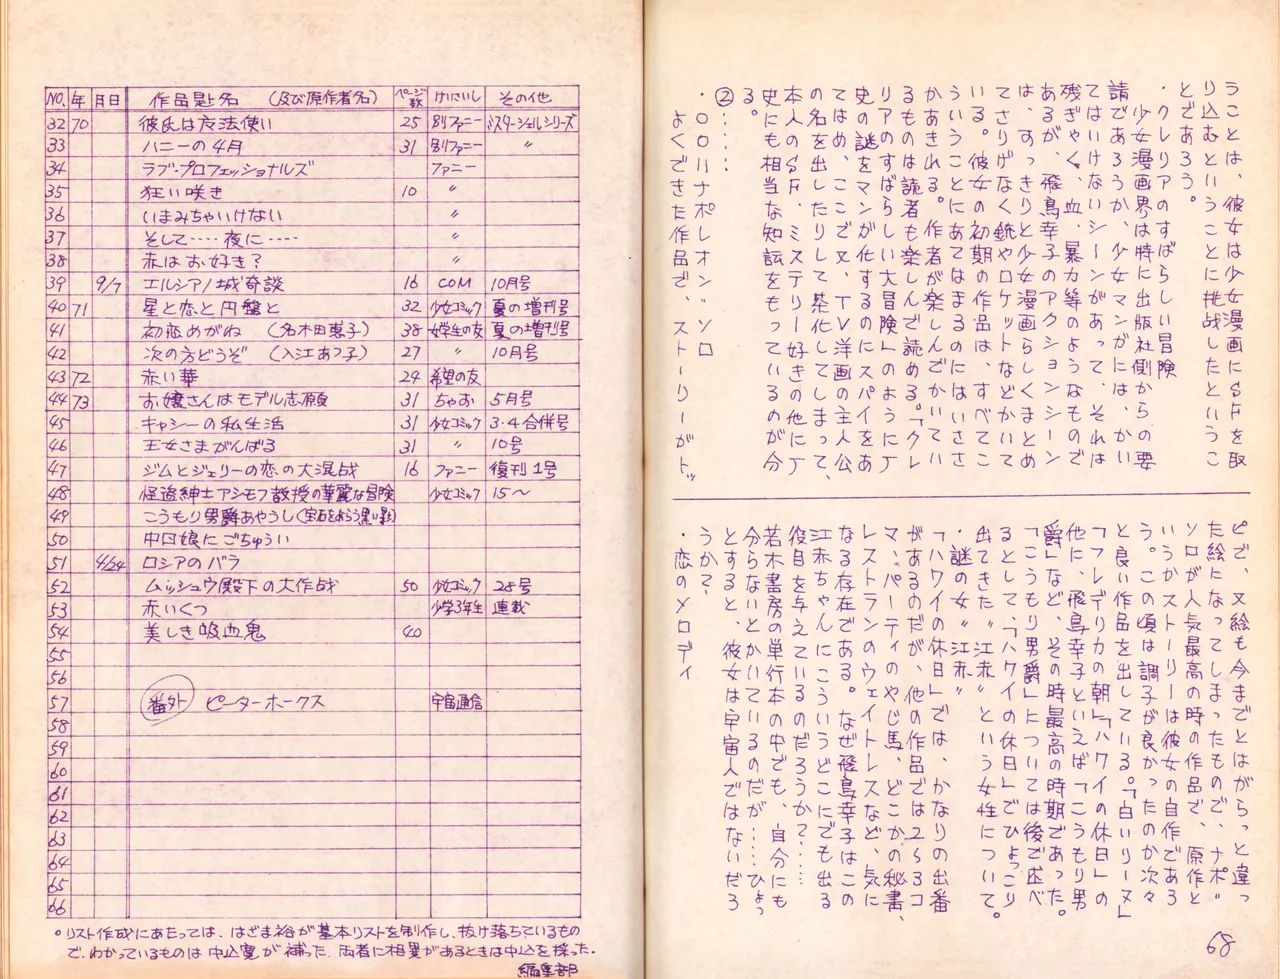 うことは、彼女は少女漫画にSFを取
り込むということに挑戦したというこ
とであろう。
・クレリアのすばらしい冒険
少女漫画界は特に出版社側からの要
請であろうか、少女マンガには、かい
てはいけないシーンがあって、それは
残ぎゃく、血、暴力等のようなもので
あるが、飛鳥幸子のアクションシーン
は、すっきりと少女漫画らしくまとめ
てさりげなく銃やロケットなどかいて
いる。彼女の初期の作品は、すべてこ
ういうことにあてはまるのにはいささ
かあきれる。作者が楽しんでかいてい
るものは読者も楽しんで読める。「クレ
リアのすばらしい大冒険」のように
史の謎をマンガ化するのにスパイをあ
てはめ、ここで又、TV洋画の主人公
の名を出したりして、茶化してしまって、
本人のSF、ミステリー好きの他に
史にも相当な知識をもっているのが分
る。
②……
ナポレオン・ソロ
よくできた作品で、ストーリーがトッ
ピで、又絵も今まではがらっと違っ
た絵になってしまったもので、ナポ
ソロが人気最高の時の作品で、原作と
いうかストーリーは彼女の自作であろ
う。この頃は調子が良かったのか次々
と良い作品を出している。「白いリーヌ」
「フレデリカの朝」「ハワイの休日」の
他に、飛鳥幸子といえば「こうもり男
爵」など、その時最高の時期であった。
「こうもり男爵」については後で述べ
るとして、「ハワイの休日」でひょっこり
出てきた〝江赤〟という女性について。
・謎の女〝江赤〟
「ハワイの休日」では、かなりの出番
があるのだが、他の作品では2〜3コ
マ、パーティのやじ馬、どこかの秘書、
レストランのウェイトレスなど、気に
なる存在である。なぜ飛鳥幸子はこの
江赤ちゃんにこういうどこにでも出る
役目を与えているのだろうか？……
若木書房の単行本の中でも、自分にも
分らないとかいているのだが……ひょっ
とすると、彼女は宇宙人ではないだろ
うか？
・恋のメロディ
68
NO. 年 月日 作品題名 (及び原作者名) ページ数 けいさいし その他
32 70 彼氏は魔法使い 25 別ファニー ミスターシェルシリーズ
33 ハニーの4月 31 別ファニー 〃
34 ラブ・プロフェッショナルズ ファニー
35 狂い咲き 10 〃
36 いまみちゃいけない 〃
37 そして……夜に…… 〃
38 赤はお好き？ 〃
39 9/7 エルシノア城奇談 16 COM 10月号
40 71 星と恋と円盤と 32 少女コミック 夏の増刊号
41 初恋めがね (名木田恵子) 38 女学生の友 夏の増刊号
42 次の方どうぞ (入江あつ子) 27 〃 10月号
43 72 赤い華 24 希望の友
44 73 お嬢さんはモデル志願 31 ちゃお 5月号
45 キャシーの私生活 31 少女コミック 3・4合併号
46 王女さまがんばる 31 〃 10号
47 ジムとジェリーの恋の大混戦 16 ファニー 復刊1号
48 怪盗紳士アシモフ教授の華麗な冒険 少女コミック 15〜
49 こうもり男爵あやうし(宝石をねらう黒い影)
50 中国娘にごちゅうい
51 4/24 ロシアのバラ
52 ムッシュウ殿下の大作戦 50 少女コミック 28号
53 赤いくつ 小学3年生 連載
54 美しき吸血鬼 40
55
56
57 番外 ピーターホークス 宇宙通信
58
59
60
61
62
63
64
65
66
○リスト作成にあたっては、はざま裕が基本リストを制作し、抜け落ちているもの
で、わかっているものは中込寛が補った。両者に相異があるときは中込を採った。
編集部